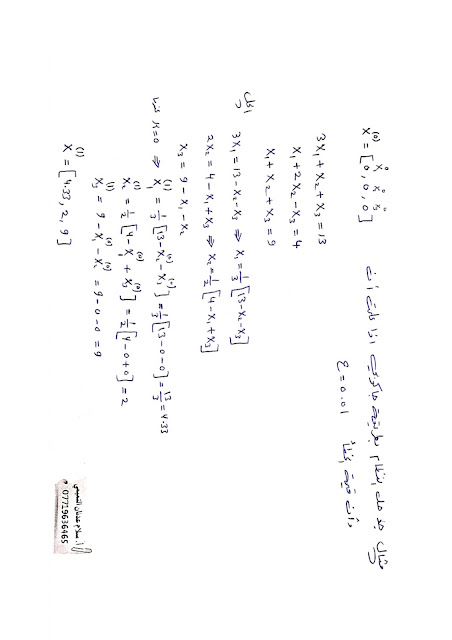 مثال جد حل النظام بطريقة جاكوبي اذا علمت ان
وأن قيمة الخطأ ε=0.01
X₁⁰ X₂⁰ X₃⁰
X⁽⁰⁾=[0,0,0]
3X₁+X₂+X₃=13
X₁+2X₂-X₃=4
X₁+X₂+X₃=9
الحل
3X₁=13-X₂-X₃ ⇒ X₁=1/3[13-X₂-X₃]
2X₂=4-X₁+X₃ ⇒ X₂=1/2[4-X₁+X₃]
X₃=9-X₁-X₂
K=0 ⇒ X₁⁽¹⁾=1/3[13-X₂⁽⁰⁾-X₁⁽⁰⁾]=1/3[13-0-0]=13/3=4.33
X₂⁽¹⁾=1/2[4-X₁⁽⁰⁾+X₃⁽⁰⁾]=1/2[4-0+0]=2
X₃⁽¹⁾=9-X₁⁽⁰⁾-X₂⁽⁰⁾=9-0-0=9
X⁽¹⁾=[4.33,2,9]
أ. سلام عدنان التميمي
07719636465